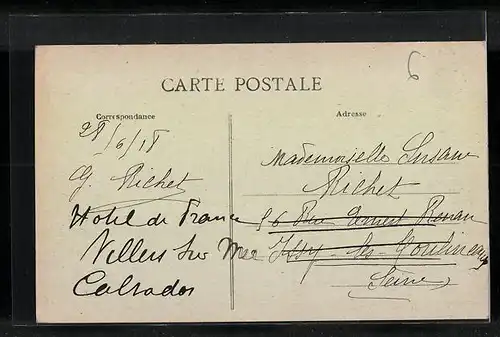 6
CARTE POSTALE
Correspondance
Adresse
28/6/18
G. Richet
Hotel de France
Villers sur Mer
Calvados
Mademoiselle Susane
Richet
56 Rue Ernest Renan
Issy-les-Moulineaux
Seine